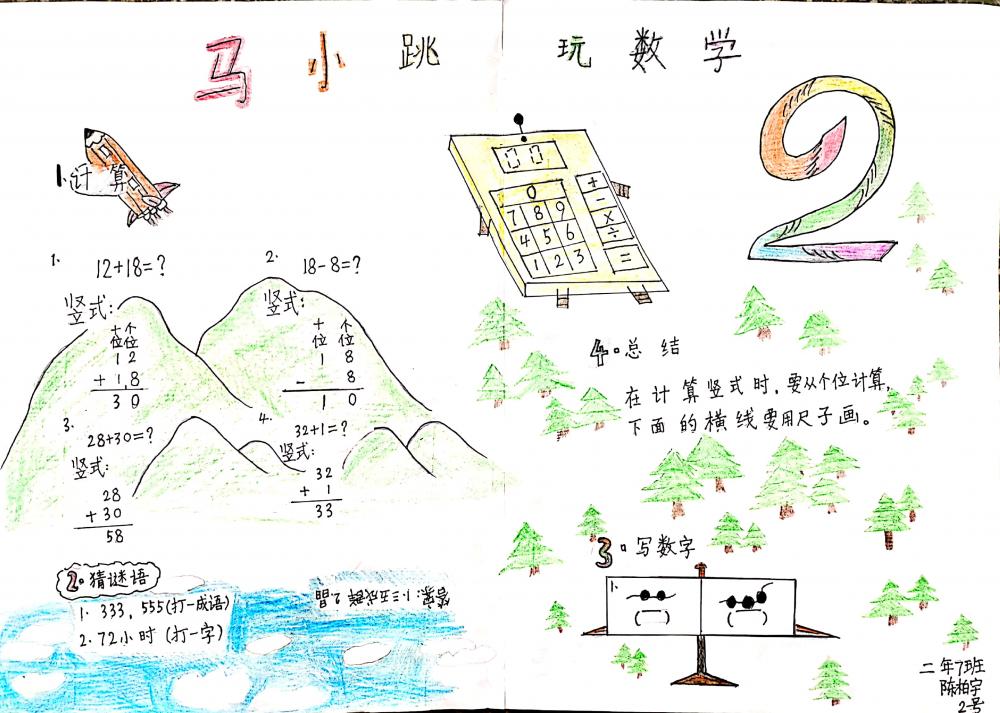 马小跳 玩数学
1.计算
1. 12+18=?
竖式:
十位 个位
1 2
+ 1 8
3 0
2. 18-8=?
竖式:
十位 个位
1 8
- 8
1 0
3. 28+30=?
竖式:
28
+ 30
58
4. 32+1=?
竖式:
32
+ 1
33
2.猜谜语
1. 333,555(打一成语)
2.72小时(打一字)
答案:1.三五成群 2.晶
00
0
7 8 9
4 5 6
1 2 3
+
-
×
÷
=
2
4.总结
在计算竖式时,要从个位计算,
下面的横线要用尺子画。
3.写数字
1.
( ) ( )
二年7班
陈柏宇
2号